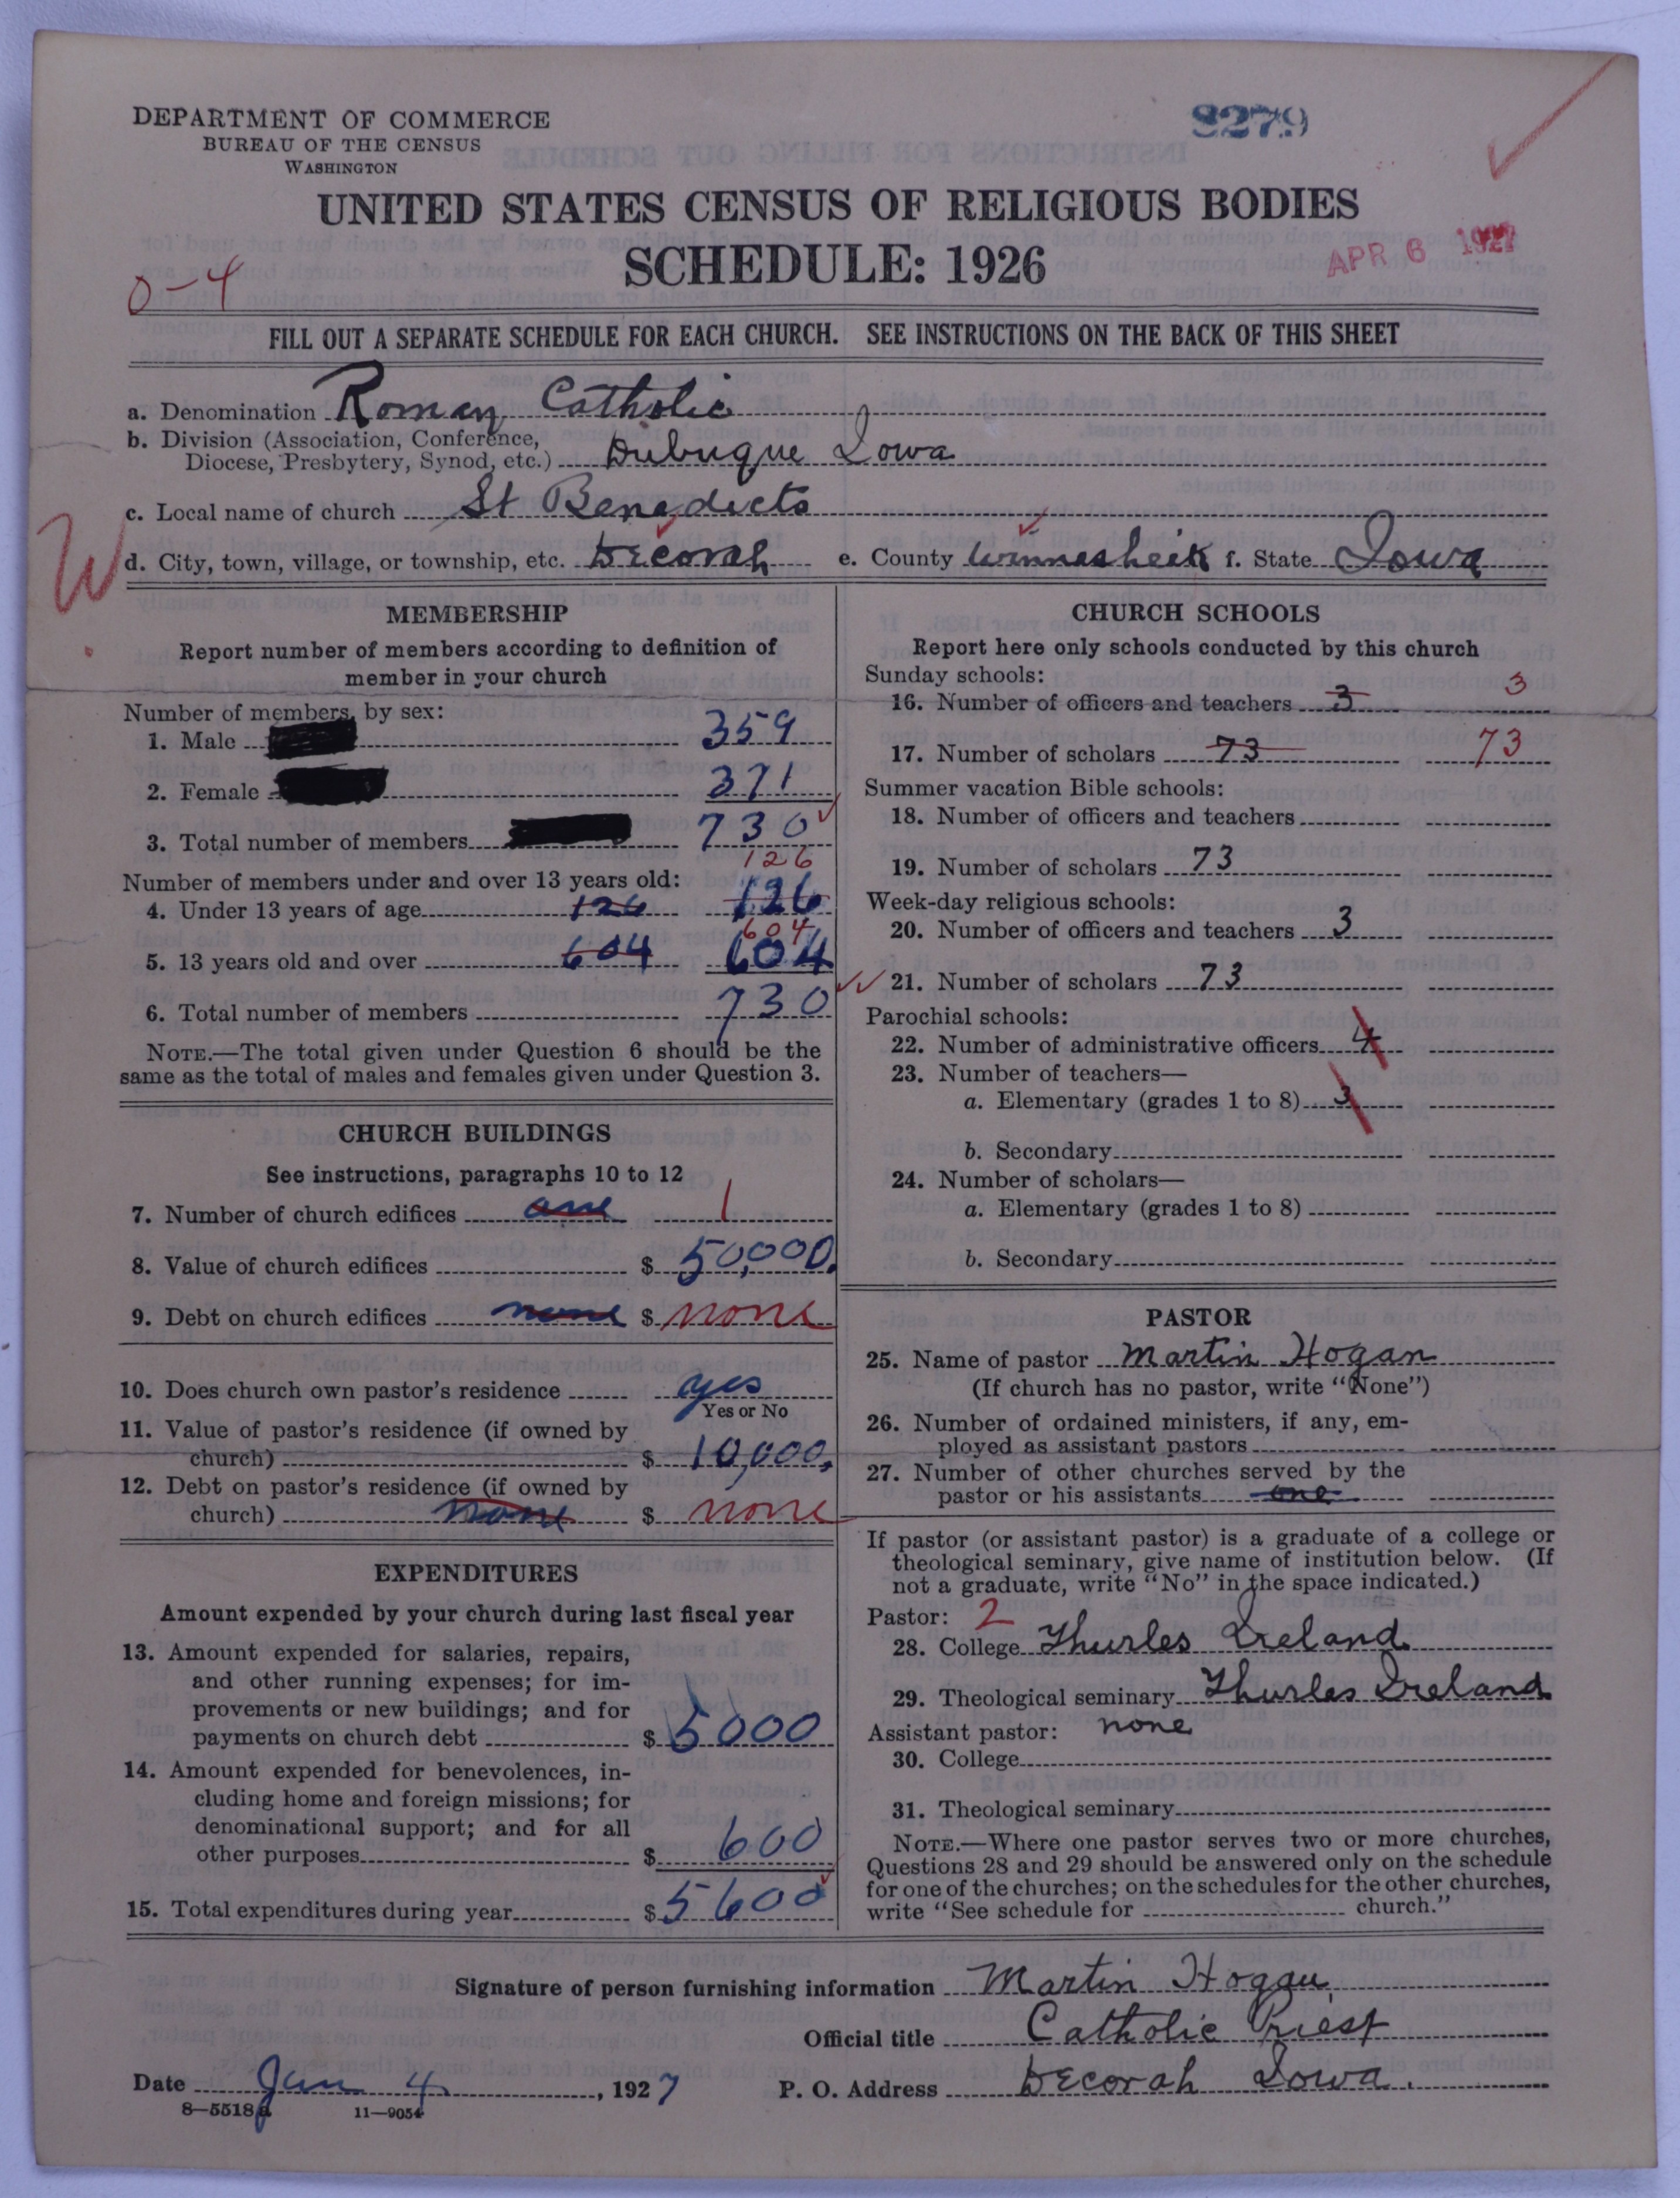 DEPARTMENT OF COMMERCE
BUREAU OF THE CENSUS
WASHINGTON
8279
UNITED STATES CENSUS OF RELIGIOUS BODIES
SCHEDULE: 1926
APR 6 1927
0-4
FILL OUT A SEPARATE SCHEDULE FOR EACH CHURCH. SEE INSTRUCTIONS ON THE BACK OF THIS SHEET
a. Denomination Roman Catholic
b. Division (Association, Conference,
Diocese, Presbytery, Synod, etc.) Dubuque Iowa
c. Local name of church St Benedicts
W
d. City, town, village, or township, etc. Decorah e. County Winnesheik f. State Iowa
MEMBERSHIP
Report number of members according to definition of
member in your church
Number of members, by sex:
1. Male 359
2. Female 371
3. Total number of members 730
126
Number of members under and over 13 years old:
4. Under 13 years of age 126 126
604
5. 13 years old and over 604 604
6. Total number of members 730
NOTE.—The total given under Question 6 should be the
same as the total of males and females given under Question 3.
CHURCH BUILDINGS
See instructions, paragraphs 10 to 12
7. Number of church edifices one 1
8. Value of church edifices $ 50,000.
9. Debt on church edifices none $ none
10. Does church own pastor's residence yes
Yes or No
11. Value of pastor's residence (if owned by
church) $ 10,000.
12. Debt on pastor's residence (if owned by
church) none $ none
EXPENDITURES
Amount expended by your church during last fiscal year
13. Amount expended for salaries, repairs,
and other running expenses; for im-
provements or new buildings; and for
payments on church debt $ 5000
14. Amount expended for benevolences, in-
cluding home and foreign missions; for
denominational support; and for all
other purposes $ 600
15. Total expenditures during year $ 5600
CHURCH SCHOOLS
Report here only schools conducted by this church
Sunday schools:
16. Number of officers and teachers 3 3
17. Number of scholars 73 73
Summer vacation Bible schools:
18. Number of officers and teachers
19. Number of scholars 73
Week-day religious schools:
20. Number of officers and teachers 3
21. Number of scholars 73
Parochial schools:
22. Number of administrative officers 4
23. Number of teachers—
a. Elementary (grades 1 to 8) 3
b. Secondary
24. Number of scholars—
a. Elementary (grades 1 to 8)
b. Secondary
PASTOR
25. Name of pastor Martin Hogan
(If church has no pastor, write "None")
26. Number of ordained ministers, if any, em-
ployed as assistant pastors
27. Number of other churches served by the
pastor or his assistants one
If pastor (or assistant pastor) is a graduate of a college or
theological seminary, give name of institution below. (If
not a graduate, write "No" in the space indicated.)
Pastor: 2
28. College Thurles Ireland
29. Theological seminary Thurles Ireland
Assistant pastor: none
30. College
31. Theological seminary
NOTE.—Where one pastor serves two or more churches,
Questions 28 and 29 should be answered only on the schedule
for one of the churches; on the schedules for the other churches,
write "See schedule for church."
Signature of person furnishing information Martin Hogan
Official title Catholic Priest
Date Jan 4, 1927 P. O. Address Decorah Iowa.
8—5518a 11—9054